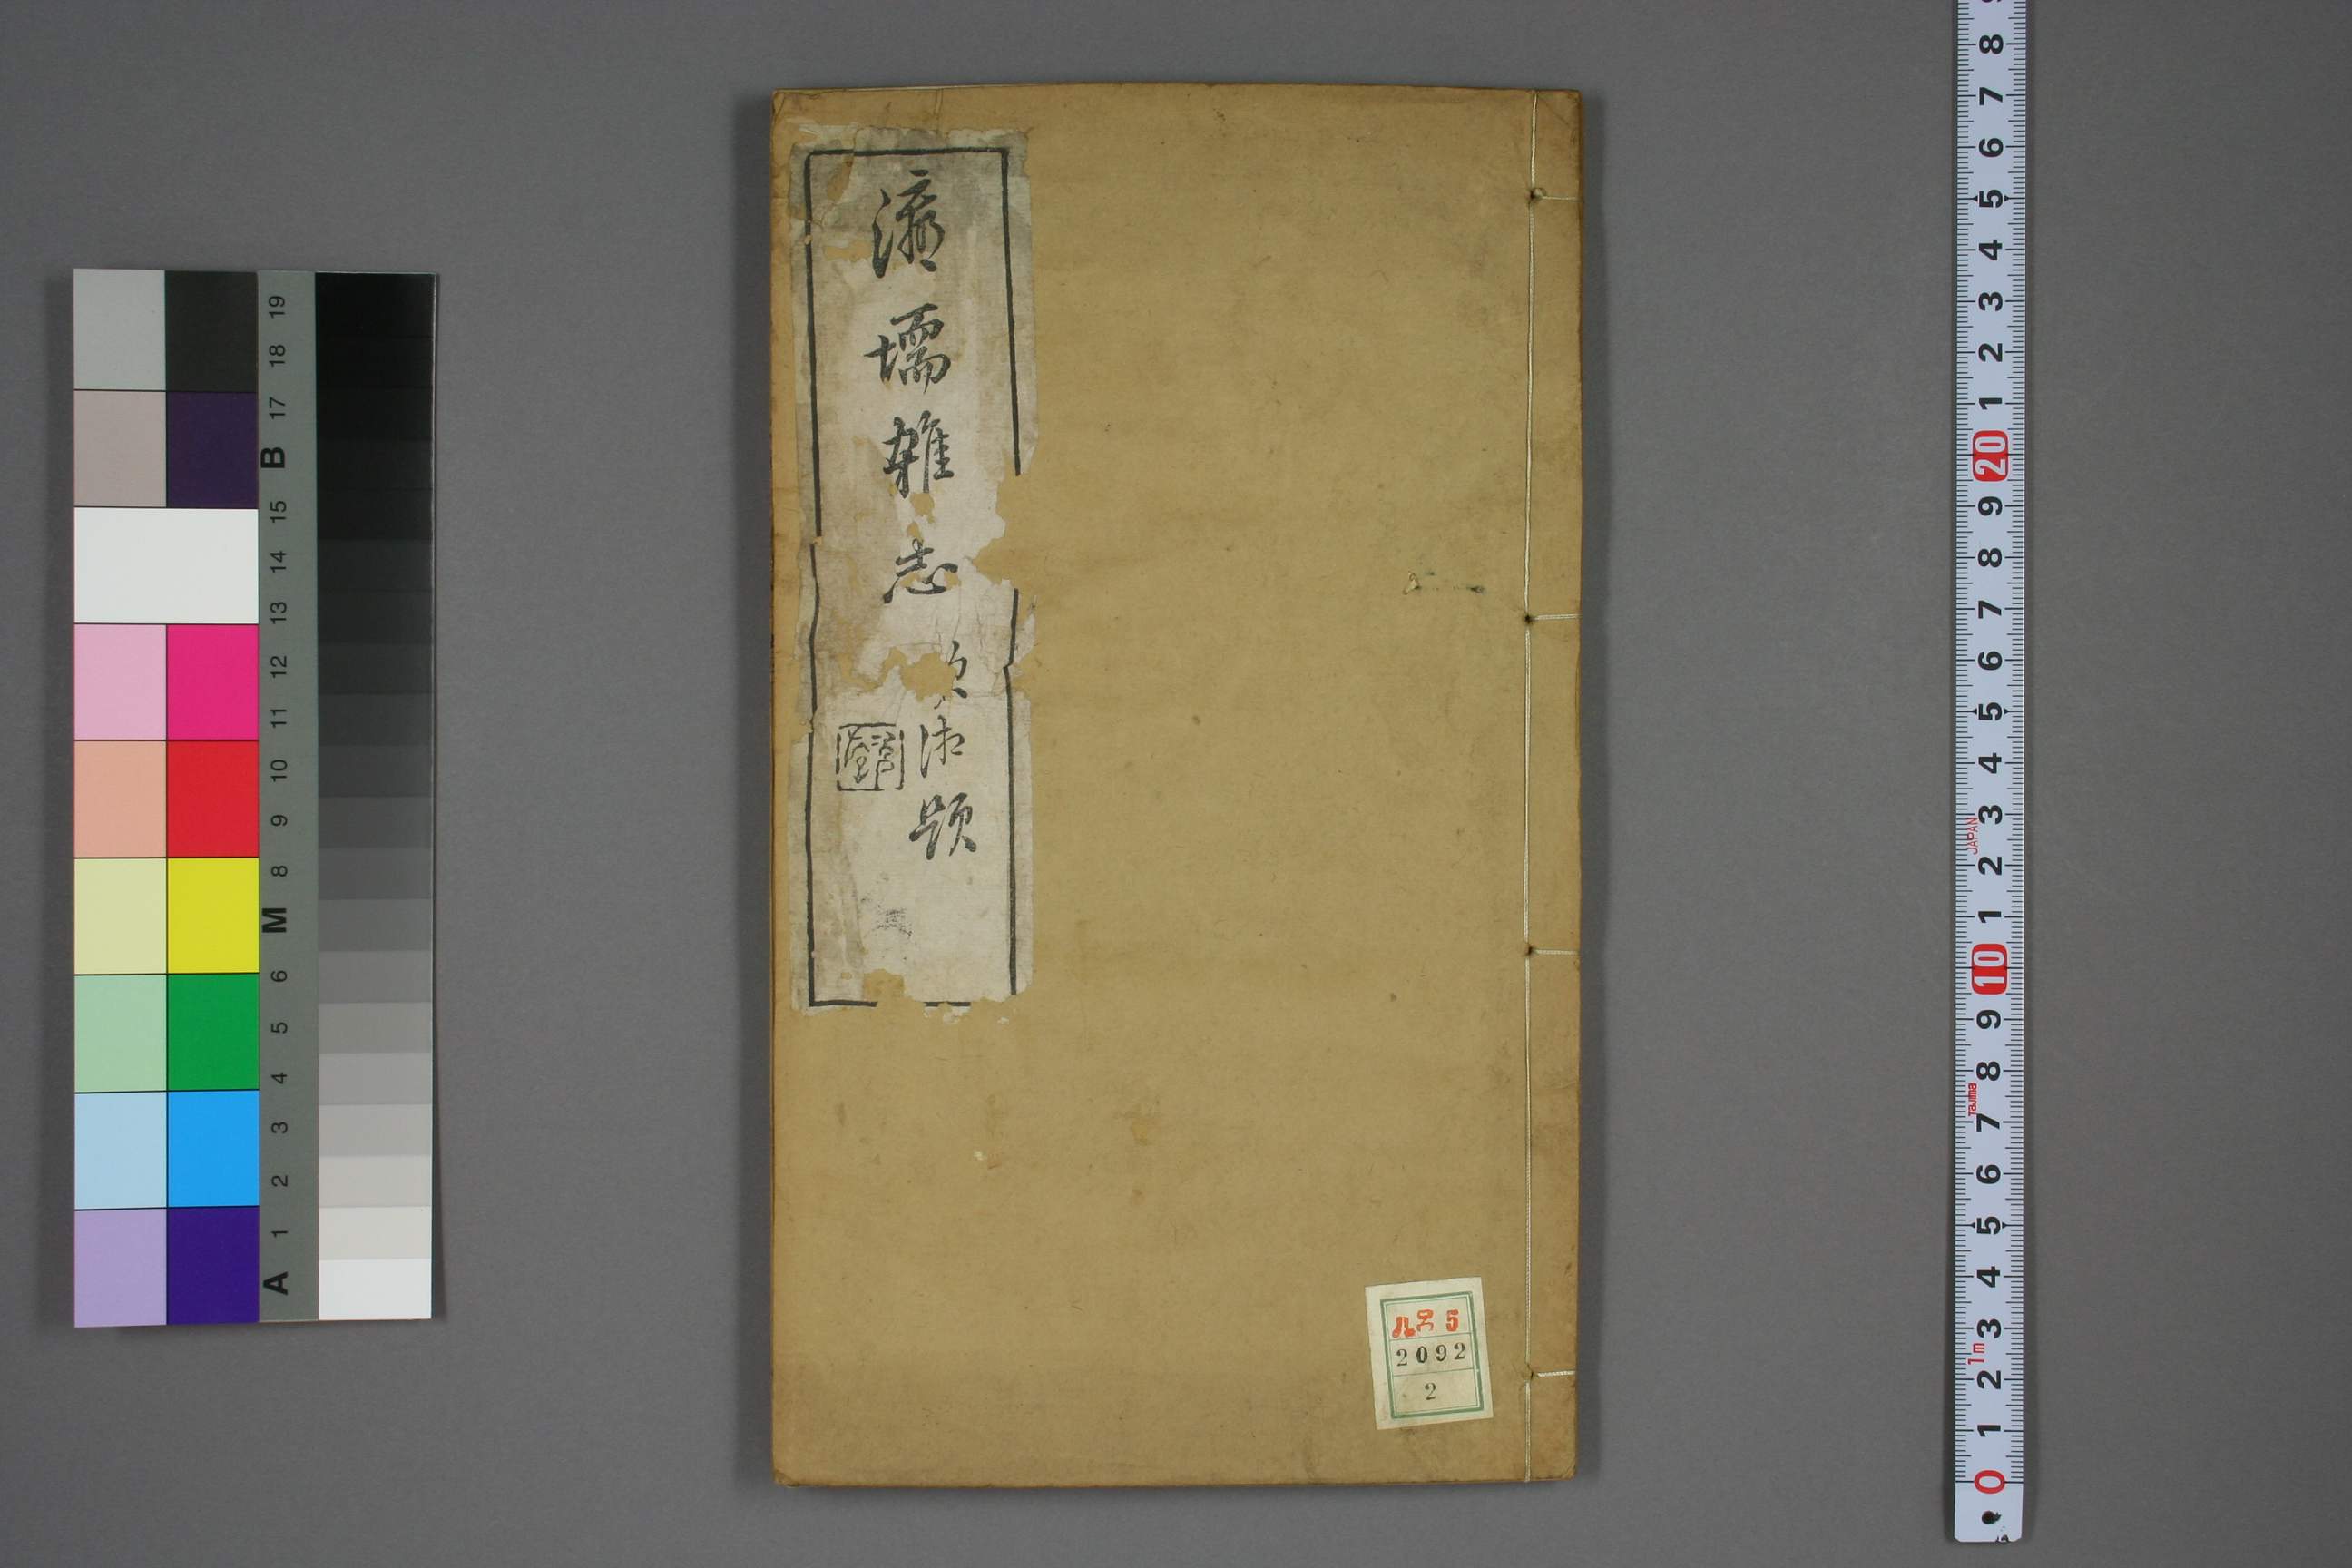 瀛壖雜志
沐題
ル5
2092
2
19
18
17
B
15
14
13
12
11
10
9
8
M
6
5
4
3
2
1
A
8
7
6
5
4
3
2
1
20
9
8
7
6
5
4
3
JAPAN
2
1
10
9
8
Tajima
7
6
5
4
3
1m
2
1
0